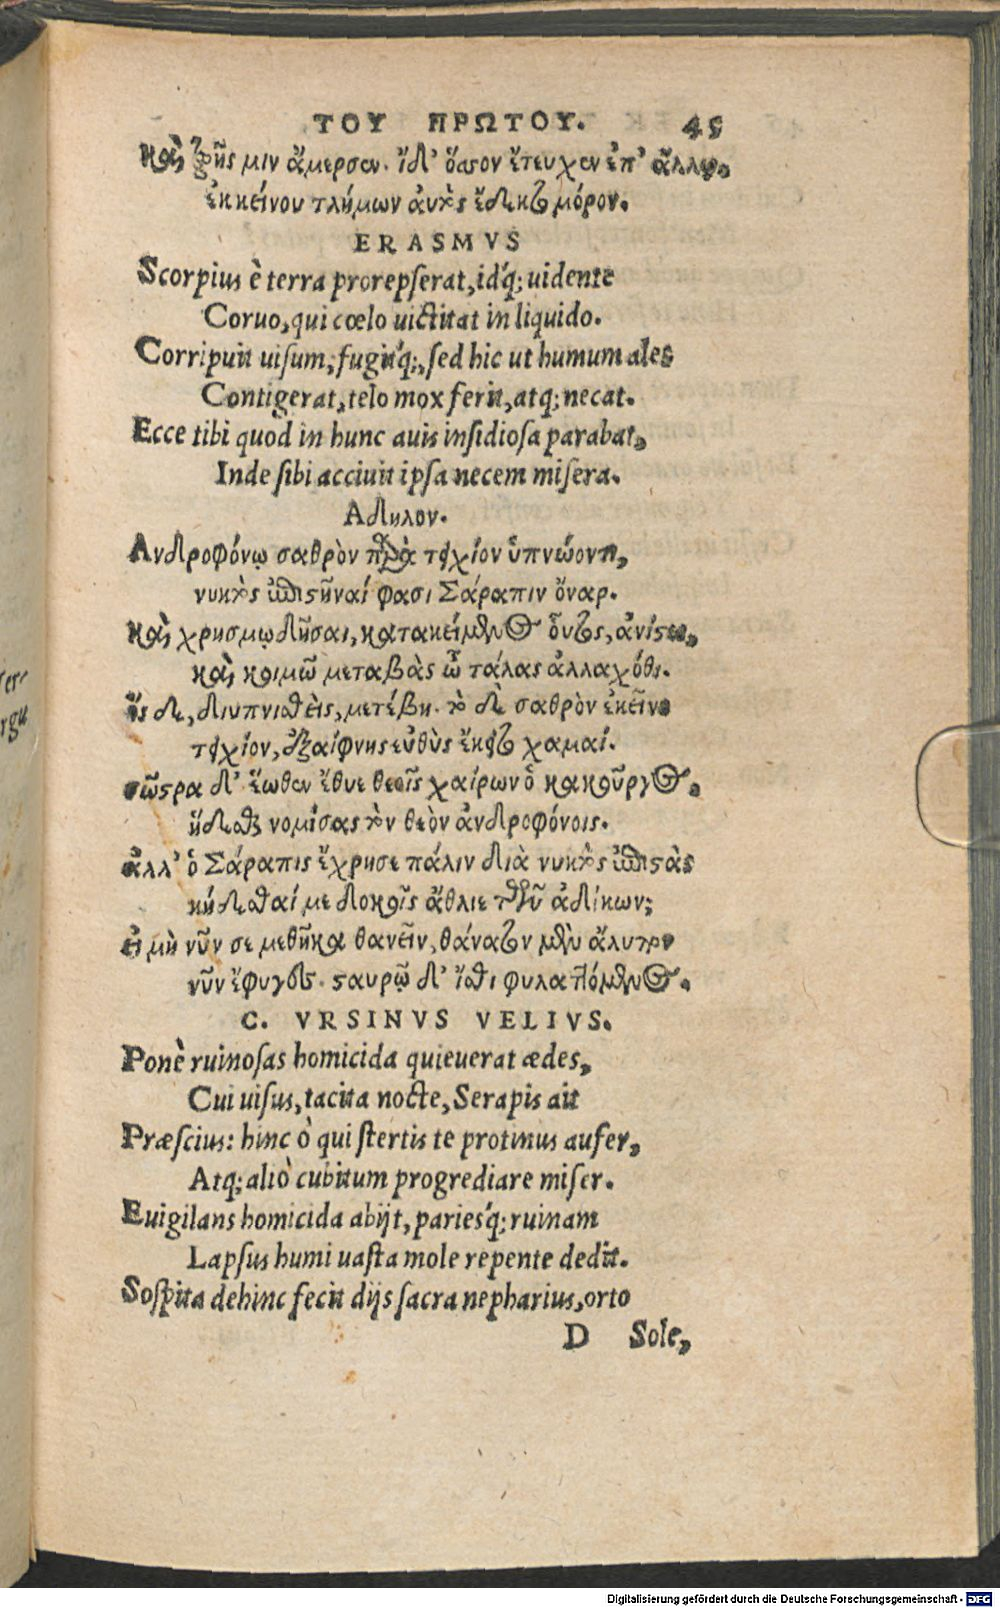 ΤΟΥ ΠΡΩΤΟΥ. 45
καὶ ζωῆς μιν ἄμερσεν. ἴδ' ὅσον ἔτευχεν ἐπ' ἄλλῳ,
ἐκκείνου τλήμων αὐτὸς ἔδεκτο μόρον.
ERASMVS
Scorpius è terra prorepſerat, idq́; uidente
Coruo, qui cœlo uictitat in liquido.
Corripuit uiſum, fugitq́;, ſed hic ut humum ales
Contigerat, telo mox ferit, atq; necat.
Ecce tibi quod in hunc auis inſidioſa parabat,
Inde ſibi acciuit ipſa necem miſera.
Αδηλον.
Ανδροφόνῳ σαθρὸν παρὰ τειχίον ὑπνώοντι,
νυκτὸς ἐπιστῆναί φασι Σάραπιν ὄναρ.
καὶ χρησμῳδῆσαι, κατακείμενος οὗτος, ἀνίστω,
καὶ κοιμῶ μεταβὰς ὦ τάλας ἀλλαχόθι.
ὅς δε, διυπνιθεὶς, μετέβη. τὸ δὲ σαθρὸν ἐκεῖνο
τειχίον, ἐξαίφνης εὐθὺς ἔκειτο χαμαί.
σῶστρα δ' ἕωθεν ἔθυε θεοῖς χαίρων ὁ κακοῦργος,
ἥδεσθαι νομίσας τὸν θεὸν ἀνδροφόνοις.
ἀλλ' ὁ Σάραπις ἔχρησε πάλιν διὰ νυκτὸς ἐπιστὰς
κήδεσθαί με δοκεῖς ἄθλιε τῶν ἀδίκων;
εἰ μὴ νῦν σε μεθῆκα θανεῖν, θάνατον μὲν ἄλυπον
νῦν ἔφυγες. σταυρῷ δ' ἴσθι φυλαττόμενος.
C. VRSINVS VELIVS.
Ponè ruinoſas homicida quieuerat ædes,
Cui uiſus, tacita nocte, Serapis ait
Præſcius: hinc ò qui ſtertis te protinus aufer,
Atq; aliò cubitum progrediare miſer.
Euigilans homicida abijt, pariesq́; ruinam
Lapſus humi uaſta mole repente dedit.
Soſpita dehinc fecit dijs ſacra nepharius, orto
D Sole,
Digitalisierung gefördert durch die Deutsche Forschungsgemeinschaft - DFG